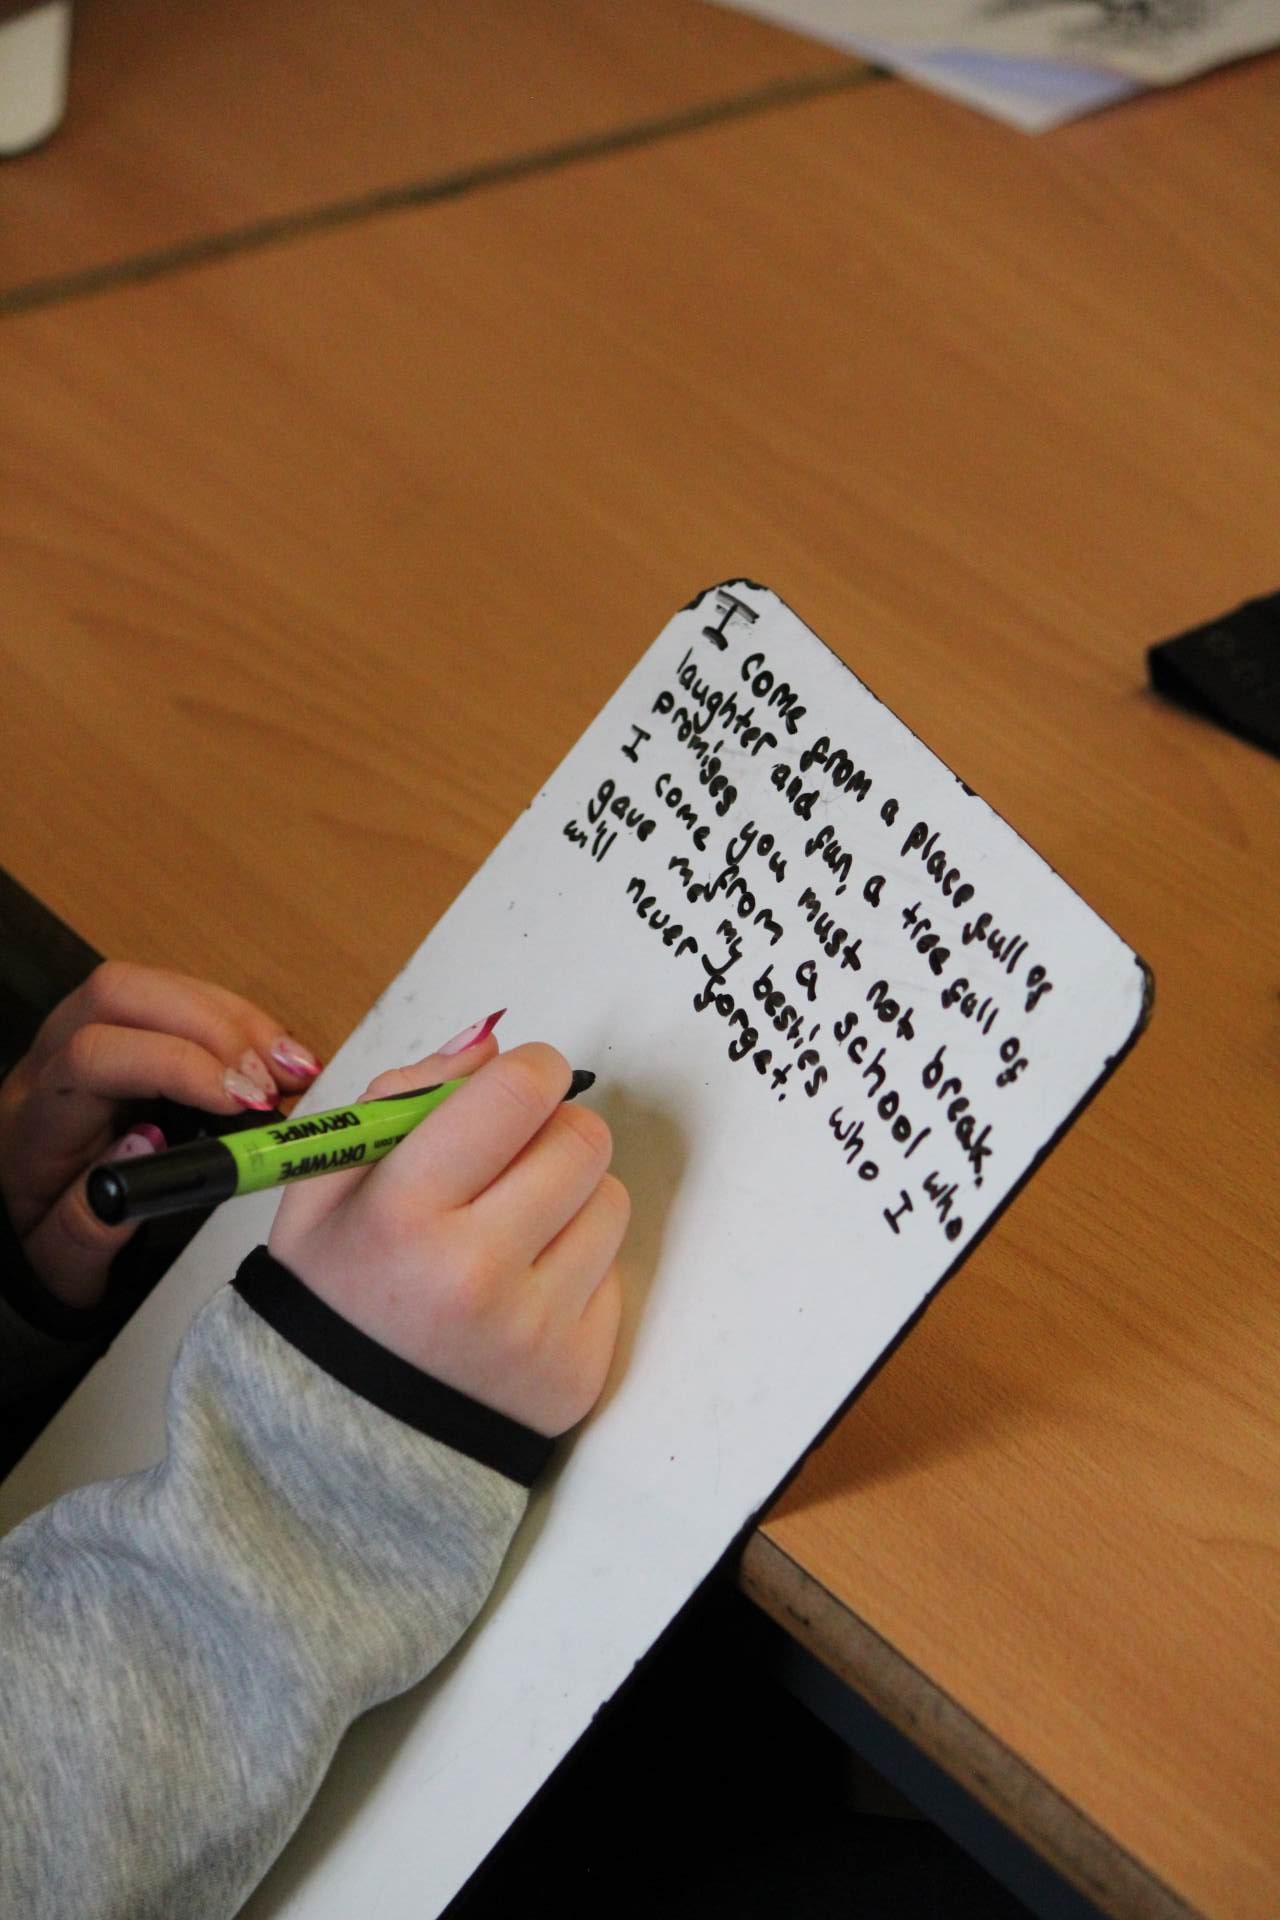 I come from a place full of
laughter and fun, a tree full of
promises you must not break.
I come from a school who
gave me my besties who I
will never forget.
DRYWIPE
DRYWIPE .com